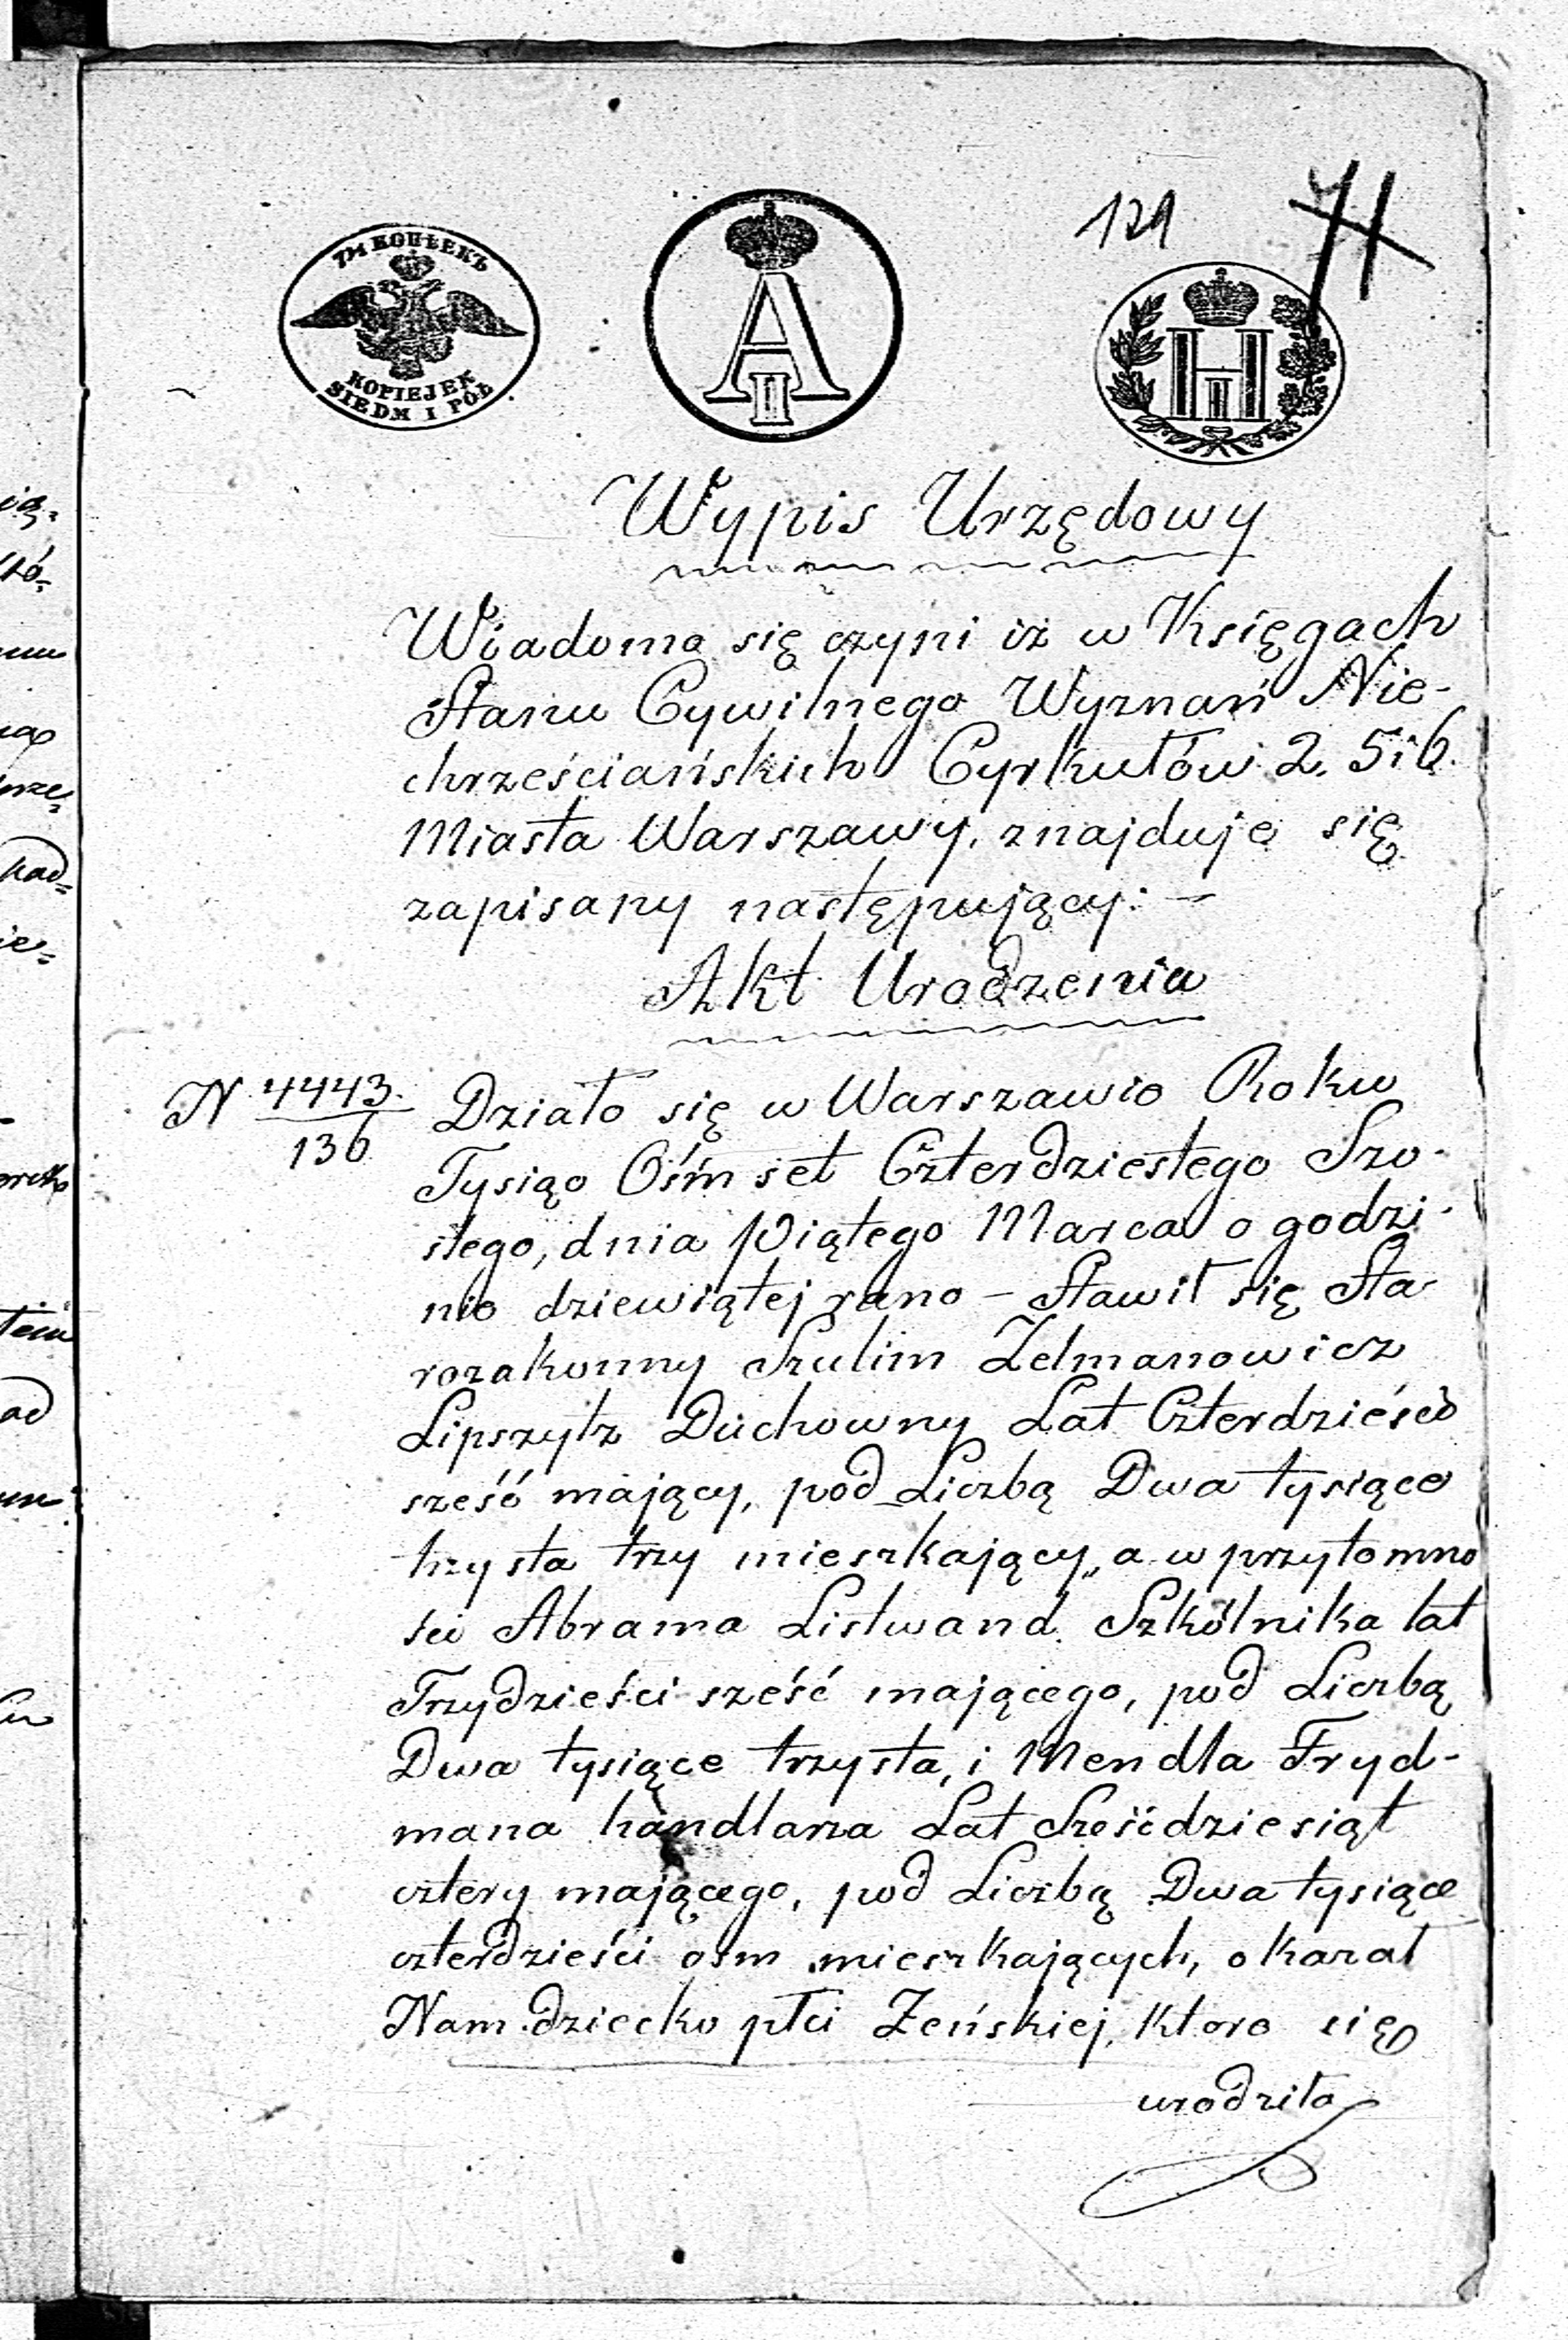 129
71
7½ КОПѢЕКЪ
KOPIEJEK
SIEDM I PÓŁ
A II
H II
Wypis Urzędowy
Wiadomo się czyni iż w Księgach
Stanu Cywilnego Wyznań Nie-
chrześciańskich Cyrkułów 2. 5 i 6.
Miasta Warszawy, znajduje się
zapisany następujący: -
Akt Urodzenia
N 4443.
136
Działo się w Warszawie Roku
Tysiąc Ośm set Czterdziestego Szo-
stego, dnia Piątego Marca o godzi-
nie dziewiątej rano - Stawił się Sta-
rozakonny Szulim Zelmanowicz
Lipszytz Duchowny Lat Czterdzieści
sześć mający, pod Liczbą Dwa tysiące
trzysta trzy mieszkający, a w przytomno
ści Abrama Listwand. Szkólnika lat
Trzydzieści sześć mającego, pod Liczbą
Dwa tysiące trzysta, i Mendla Fryd-
mana handlarza Lat Sześćdziesiąt
cztery mającego, pod Liczbą Dwa tysiące
czterdzieści ośm mieszkających, okazał
Nam dziecko płci Żeńskiej, które się
urodziło